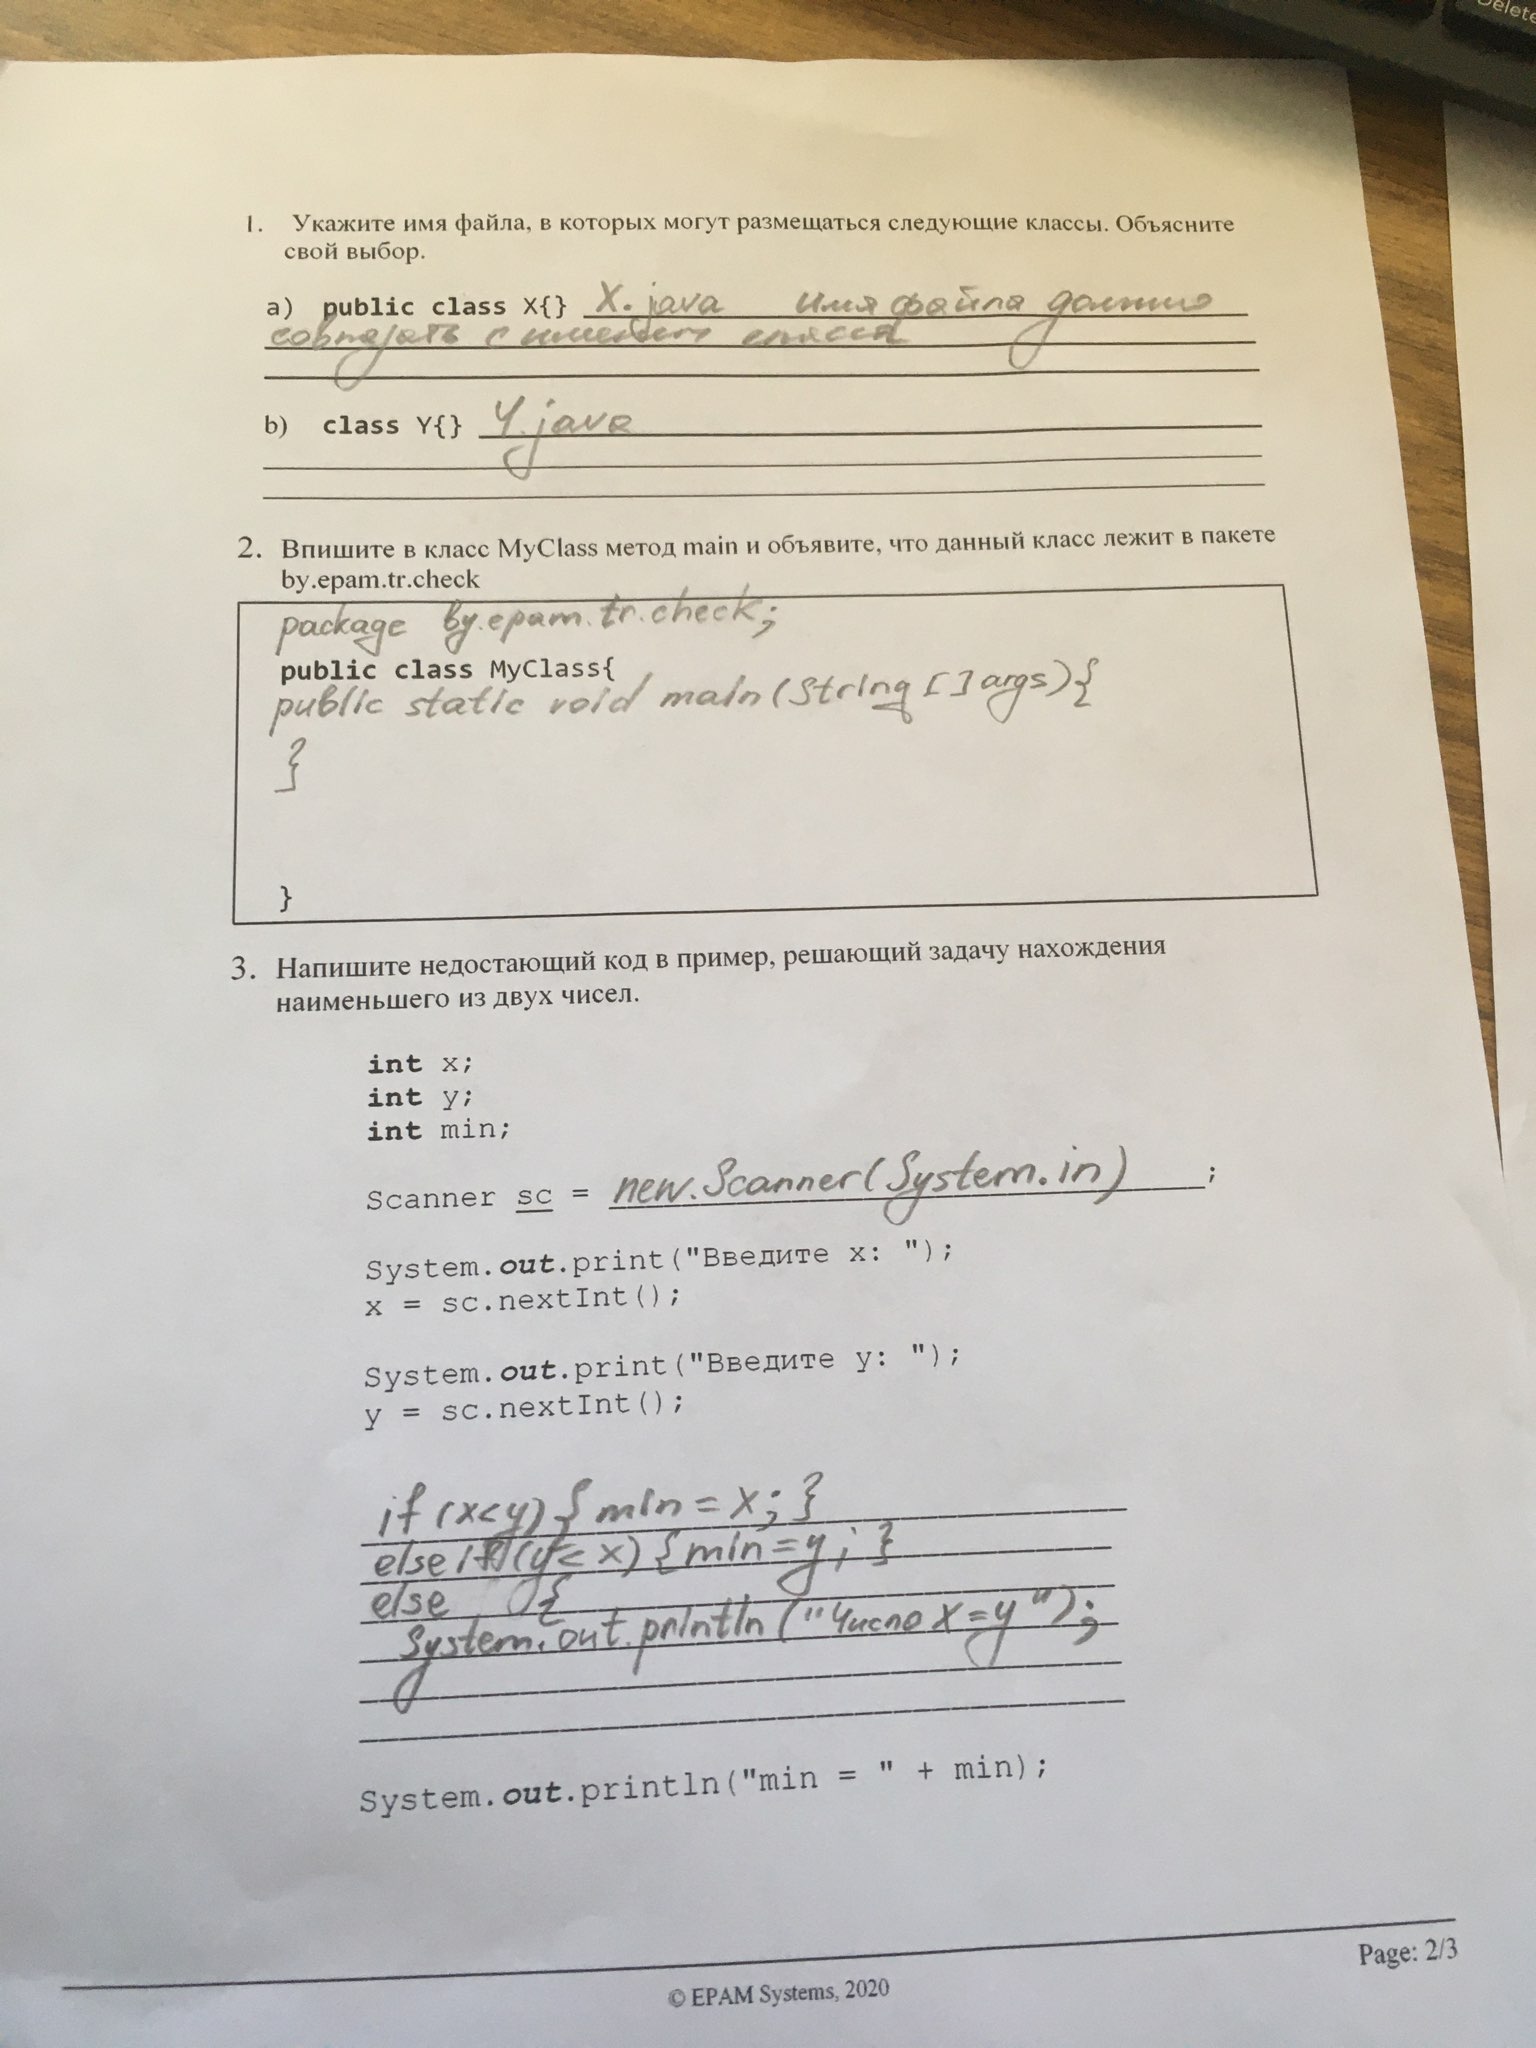 Delete
1. Укажите имя файла, в которых могут размещаться следующие классы. Объясните
свой выбор.
a) public class X{} X.java имя файла должно
совпадать с именем класса
b) class Y{} Y.java
2. Впишите в класс MyClass метод main и объявите, что данный класс лежит в пакете
by.epam.tr.check
package by.epam.tr.check;
public class MyClass{
public static void main(String [] args){
}
}
3. Напишите недостающий код в пример, решающий задачу нахождения
наименьшего из двух чисел.
int x;
int y;
int min;
Scanner sc = new.Scanner(System.in) ;
System.out.print("Введите x: ");
x = sc.nextInt();
System.out.print("Введите y: ");
y = sc.nextInt();
if (x<y) { min = x; }
else if (y< x) {min=y; }
else {
System.out.println("Число x=y");
System.out.println("min = " + min);
Page: 2/3
© EPAM Systems, 2020